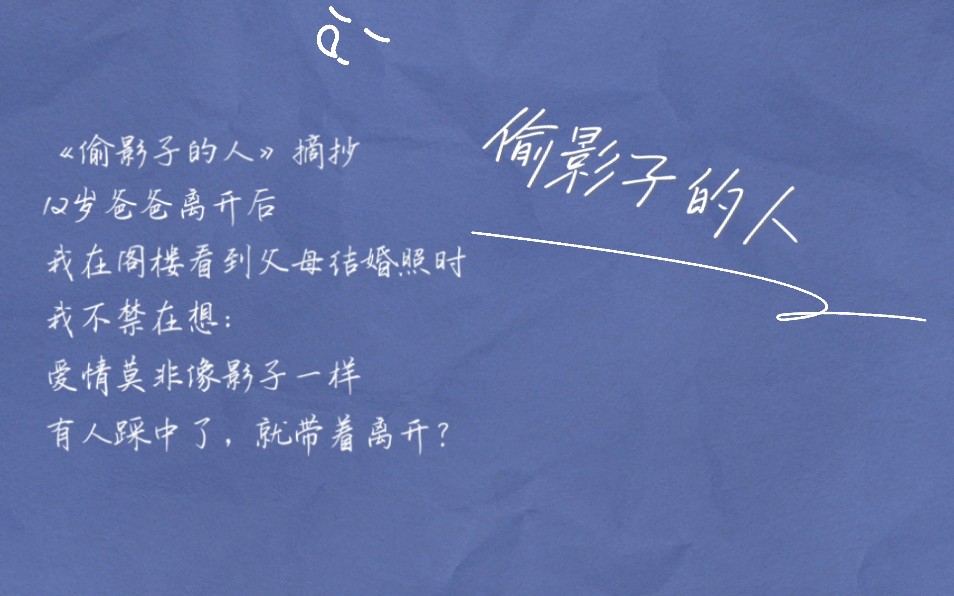 《偷影子的人》摘抄
12岁爸爸离开后
我在阁楼看到父母结婚照时
我不禁在想:
爱情莫非像影子一样
有人踩中了,就带着离开?
偷影子的人